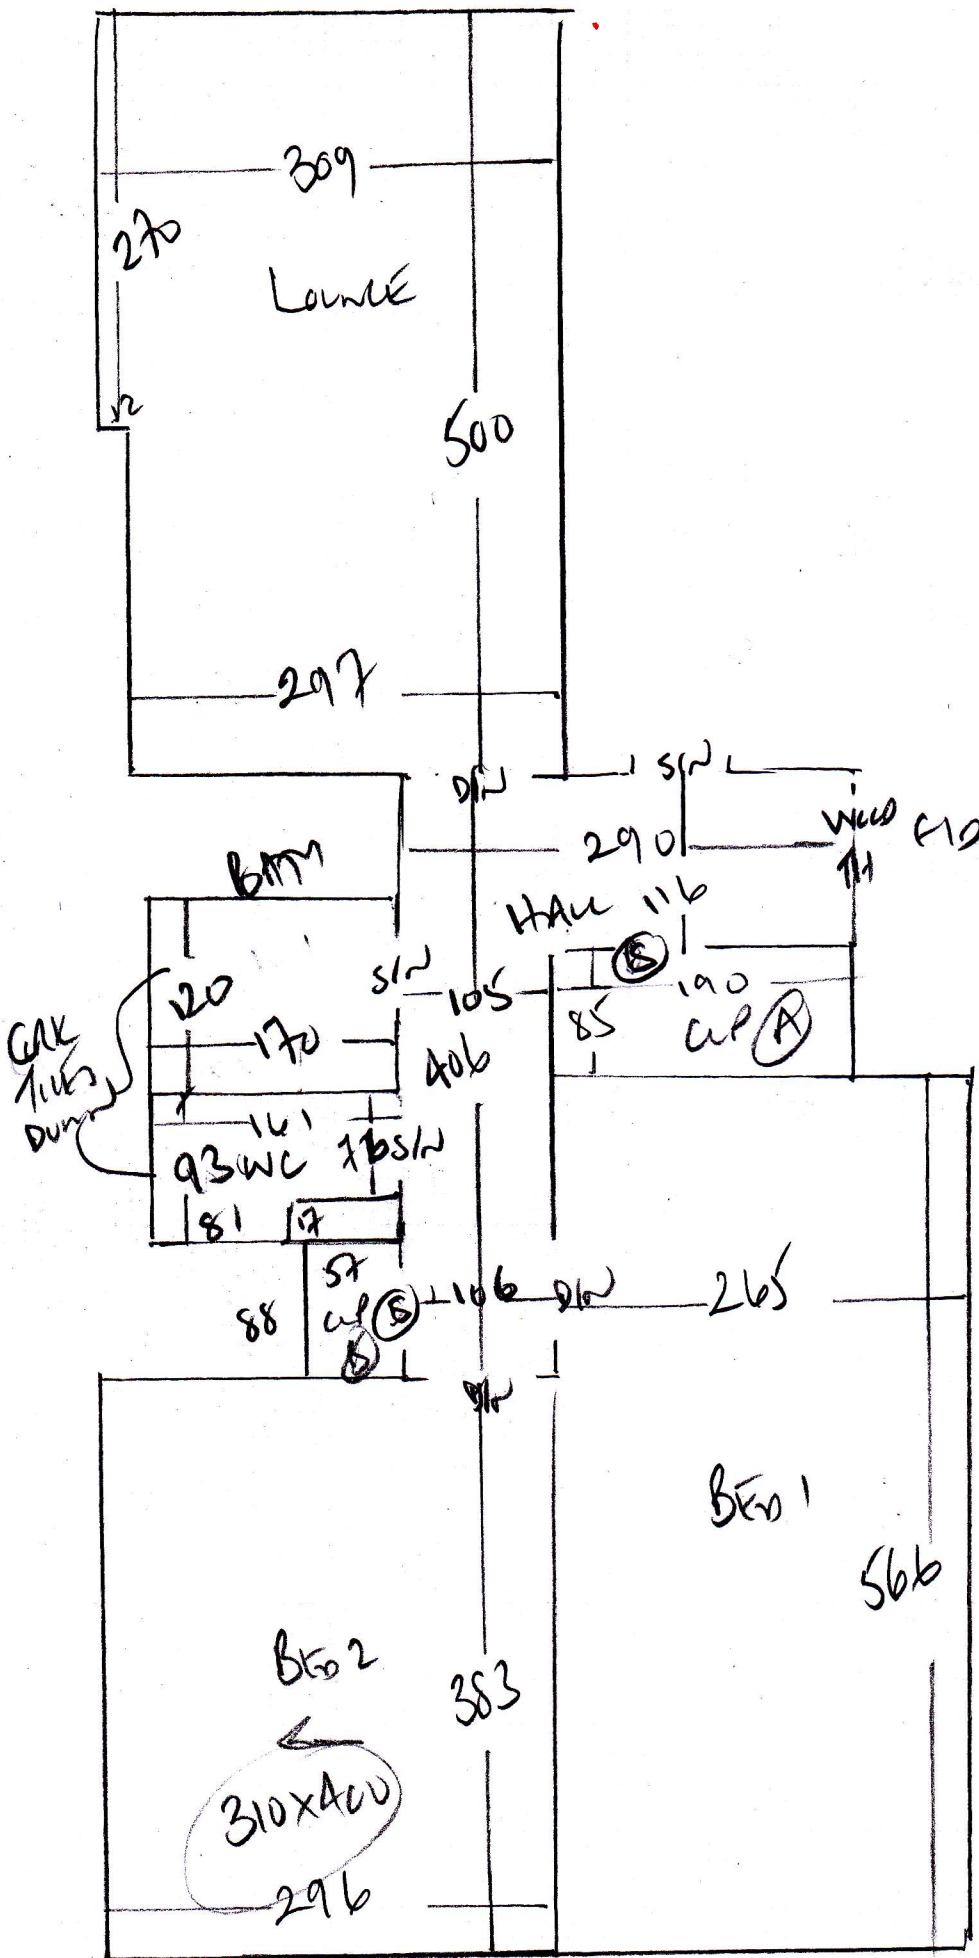 309
270
LOUNGE
12
500
297
D/N
S/N
290
WOOD
F/D
BATH
HALL 116
S/N
B
105
190
120
85
CUP A
170
406
CORK
TILES
DOWN
161
93 WC
76 S/N
81
17
57
88
CUP B
106
D/N
265
D/N
BED 1
566
BED 2
383
310X400
296